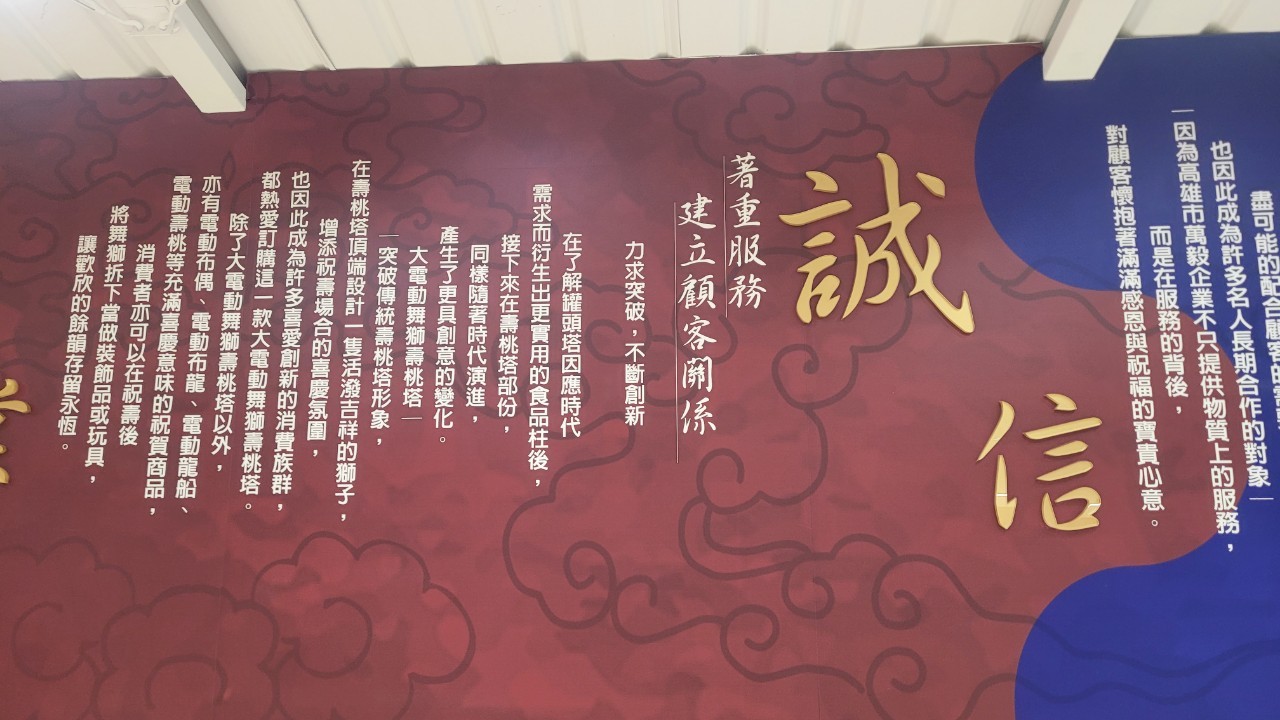 盡可能的配合顧客的
也因此成為許多名人長期合作的對象—
—因為高雄市萬毅企業不只提供物質上的服務，
而是在服務的背後，
對顧客懷抱著滿滿感恩與祝福的寶貴心意。
誠信
著重服務
建立顧客關係
力求突破，不斷創新
在了解罐頭塔因應時代
需求而衍生出更實用的食品柱後，
接下來在壽桃塔部份，
同樣隨著時代演進，
產生了更具創意的變化。
大電動舞獅壽桃塔—
—突破傳統壽桃塔形象，
在壽桃塔頂端設計一隻活潑吉祥的獅子，
增添祝壽場合的喜慶氛圍，
也因此成為許多喜愛創新的消費族群，
都熱愛訂購這一款大電動舞獅壽桃塔。
除了大電動舞獅壽桃塔以外，
亦有電動布偶、電動布龍、電動龍船、
電動壽桃等充滿喜慶意味的祝賀商品，
消費者亦可以在祝壽後
將舞獅拆下當做裝飾品或玩具，
讓歡欣的餘韻存留永恆。